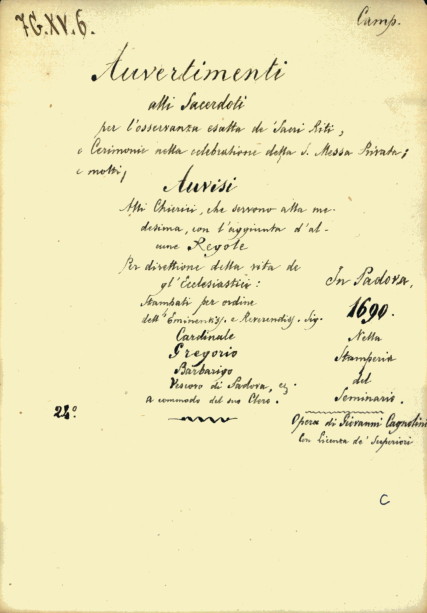 7G.XV.6.
Camp.
Auvertimenti
alli Sacerdoti
per l'osservanza esatta de' Sacri Riti,
e Cerimonie nella celebratione della S. Messa Privata;
e molti
Auvisi
Alli Chierici, che servono alla me-
desima, con l'aggiunta d'al-
cune Regole
Per direttione della vita de
gl'Ecclesiastici:
Stambati per ordine
dell'Eminentiss. e Reverendiss. Sig.
Cardinale
Gregorio
Barbarigo
Vescovo di Padova, ez.
A commodo del suo Clero.
In Padova,
1690.
Nella
Stamperia
del
Seminario.
Opera di Giovanni Cagnolini
Con Licenza de' Superiori
24º
C